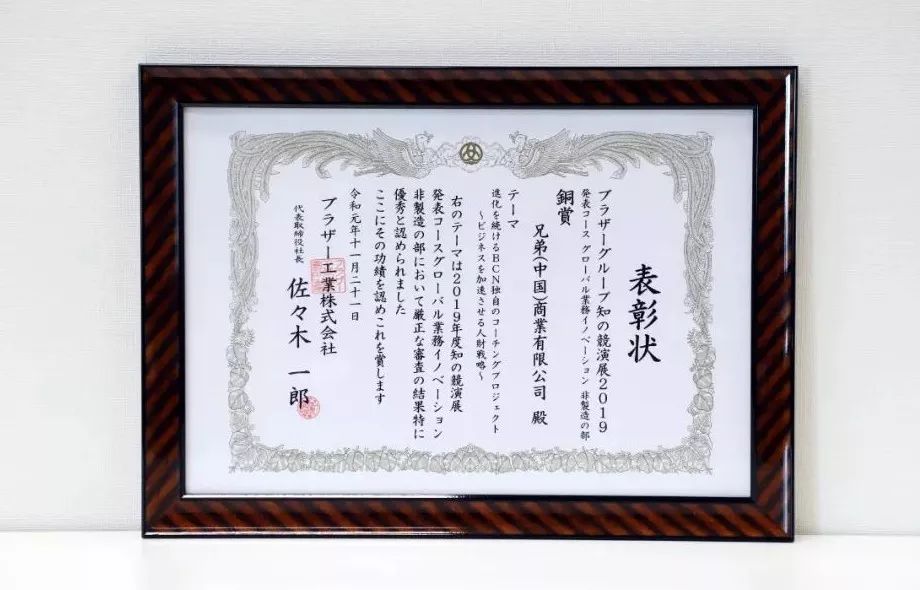 表彰状
ブラザーグループ知の競演展2019
発表コース グローバル業務イノベーション 非製造の部
銅賞
兄弟(中国)商業有限公司 殿
テーマ
進化を続けるBCN独自のコーチングプロジェクト
～ビジネスを加速させる人財戦略～
右のテーマは2019年度知の競演展
発表コースグローバル業務イノベーション
非製造の部において厳正な審査の結果特に
優秀と認められました
ここにその功績を認めこれを賞します
令和元年十一月二十一日
ブラザー工業株式会社
代表取締役社長 佐々木 一郎